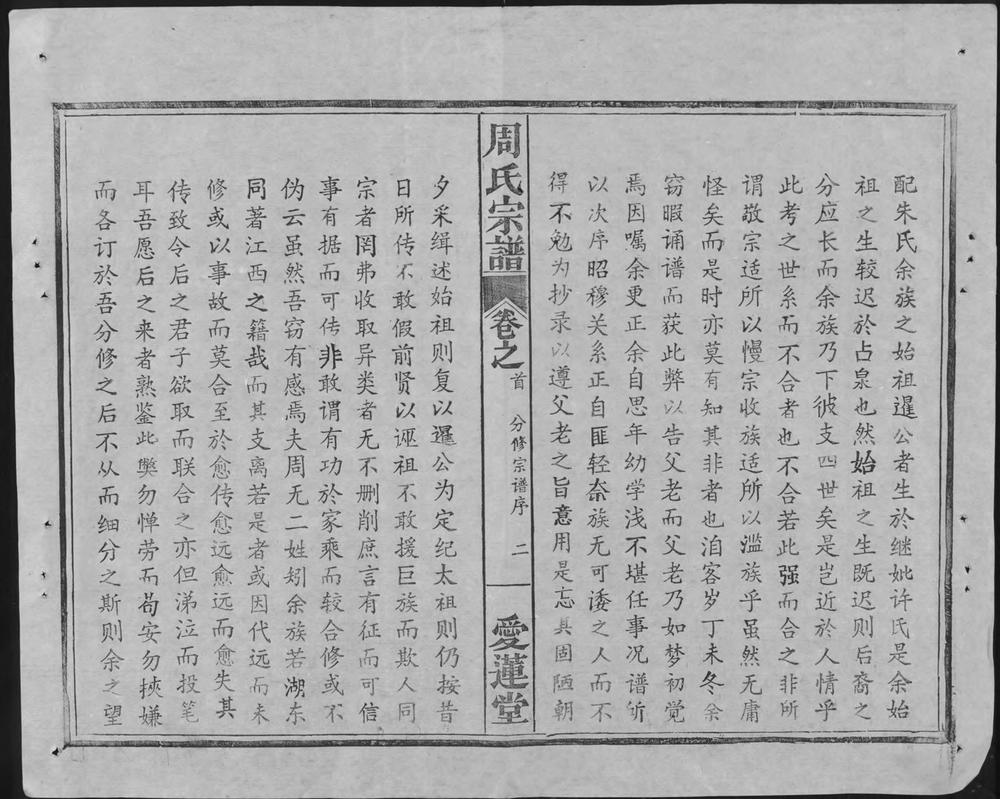 配朱氏余族之始祖暹公者生於继妣许氏是余始
祖之生较迟於占泉也然始祖之生既迟则后裔之
分应长而余族乃下彼支四世矣是岂近於人情乎
此考之世系而不合者也不合若此强而合之非所
谓敬宗适所以慢宗收族适所以滥族乎虽然无庸
怪矣而是时亦莫有知其非者也洎客岁丁未冬余
窃暇诵谱而获此弊以告父老而父老乃如梦初觉
焉因嘱余更正余自思年幼学浅不堪任事况谱所
以次序昭穆关系正自匪轻奈族无可诿之人而不
得不勉为抄录以遵父老之旨意用是忘其固陋朝
周氏宗譜
卷之
首
分修宗谱序
二
愛蓮堂
夕采缉述始祖则复以暹公为定纪太祖则仍按昔
日所传不敢假前贤以诬祖不敢援巨族而欺人同
宗者罔弗收取异类者无不删削庶言有征而可信
事有据而可传非敢谓有功於家乘而较合修或不
伪云虽然吾窃有感焉夫周无二姓矧余族若湖东
同著江西之籍哉而其支离若是者或因代远而未
修或以事故而莫合至於愈传愈远愈远而愈失其
传致令后之君子欲取而联合之亦但涕泣而投笔
耳吾愿后之来者熟鉴此獘勿惮劳而苟安勿挾嫌
而各订於吾分修之后不从而细分之斯则余之望